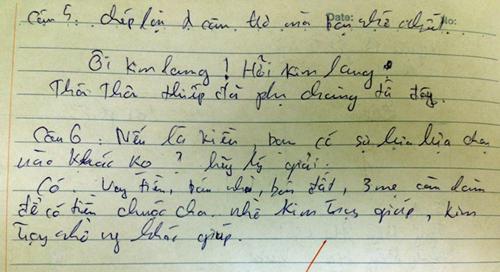 Câu 5: chép lại 1 câu thơ mà bạn nhớ nhất.
Date: No:
Ôi kim lang! Hỡi kim lang
Thôi Thôi thiếp đã phụ chàng từ đây.
Câu 6: Nếu là kiều, bạn có sự lựa lựa chọn
nào khác ko? hãy lý giải.
Có. Vay tiền, bán nhà, bán đất, 3 mẹ con làm
để có tiền chuộc cha. nhờ Kim Trọng giúp, kim
Trọng nhờ ng khác giúp.